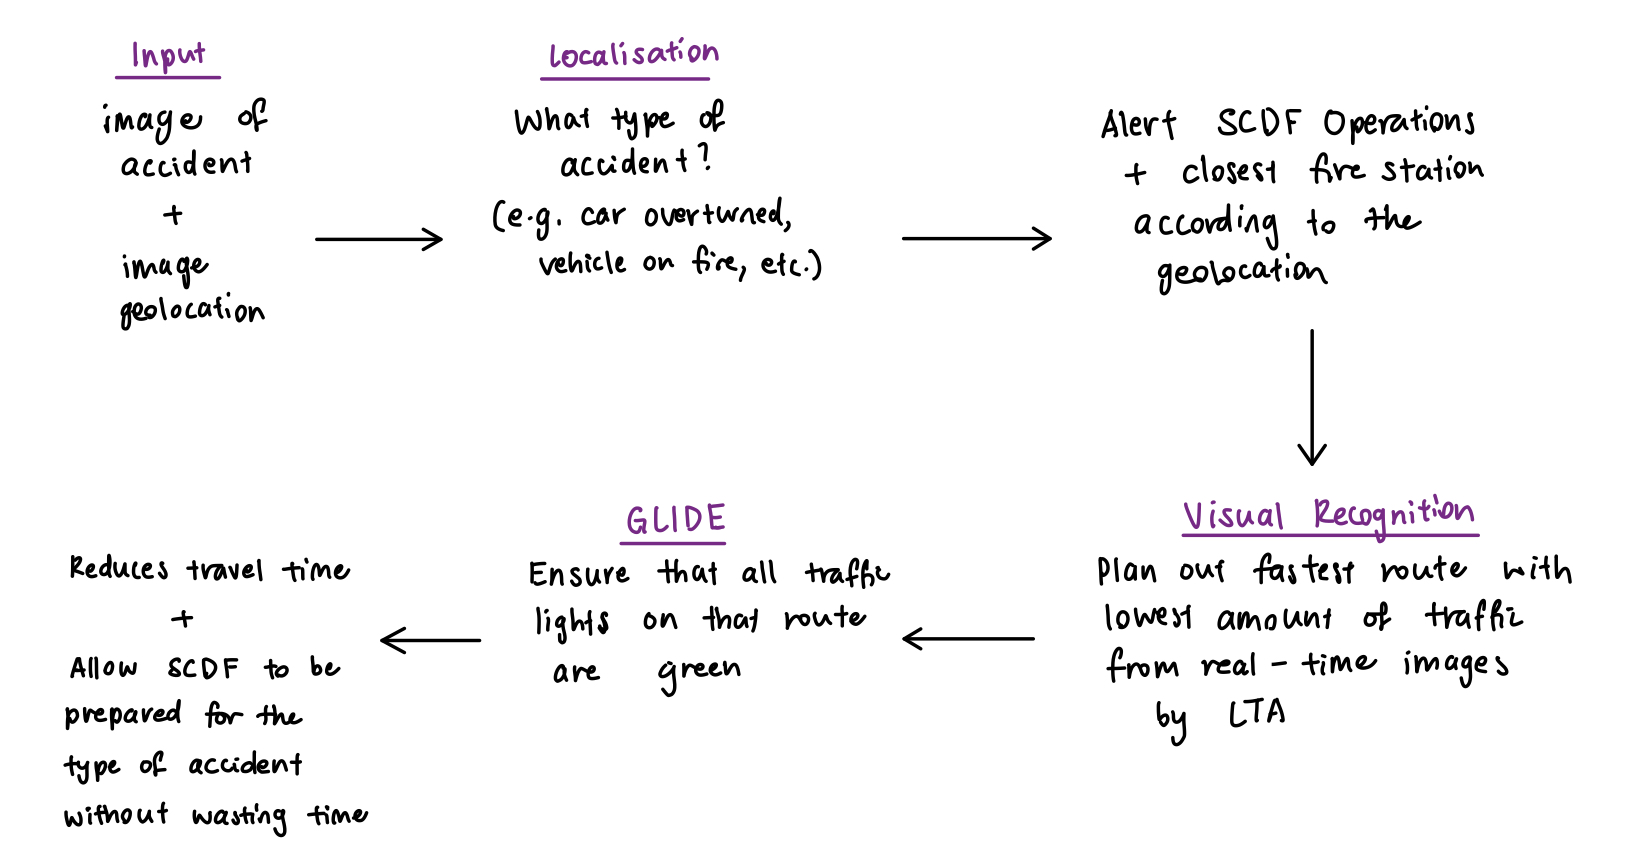 Input
image of
accident
+
image
geolocation
Localisation
What type of
accident?
(e.g. car overturned,
vehicle on fire, etc.)
Alert SCDF Operations
+ closest fire station
according to the
geolocation
Visual Recognition
Plan out fastest route with
lowest amount of traffic
from real-time images
by LTA
GLIDE
Ensure that all traffic
lights on that route
are green
Reduces travel time
+
Allow SCDF to be
prepared for the
type of accident
without wasting time